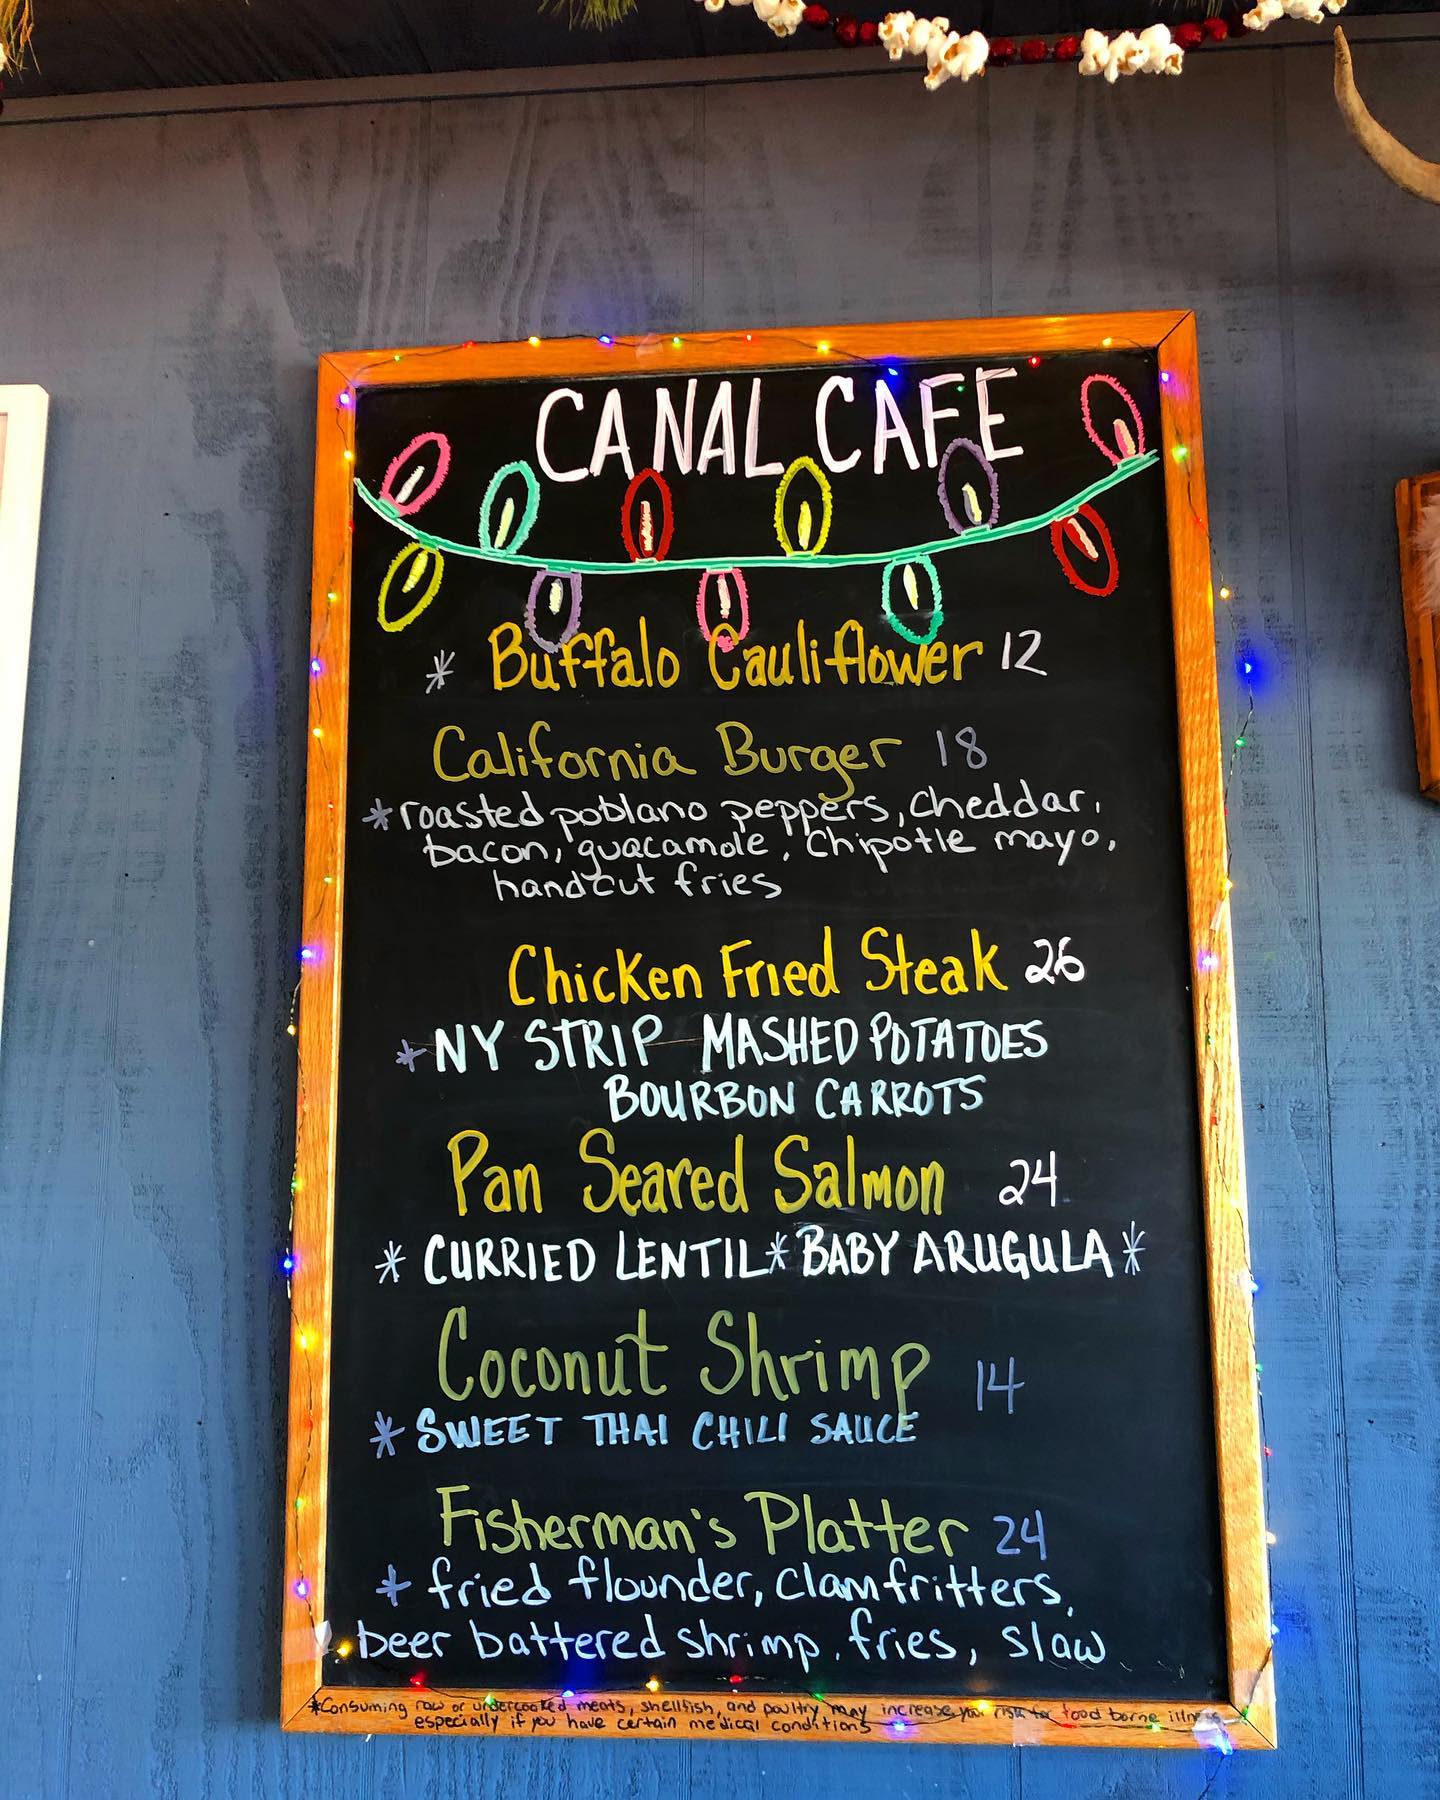 CANAL CAFE
* Buffalo Cauliflower 12
California Burger 18
* roasted poblano peppers, cheddar,
bacon, guacamole, Chipotle mayo,
handcut fries
Chicken Fried Steak 26
* NY STRIP MASHED POTATOES
BOURBON CARROTS
Pan Seared Salmon 24
* CURRIED LENTIL * BABY ARUGULA *
Coconut Shrimp 14
* SWEET THAI CHILI SAUCE
Fisherman's Platter 24
* fried flounder, Clam fritters,
beer battered shrimp, fries, slaw
*Consuming raw or undercooked meats, shellfish, and poultry may increase your risk for food borne illness
especially if you have certain medical conditions